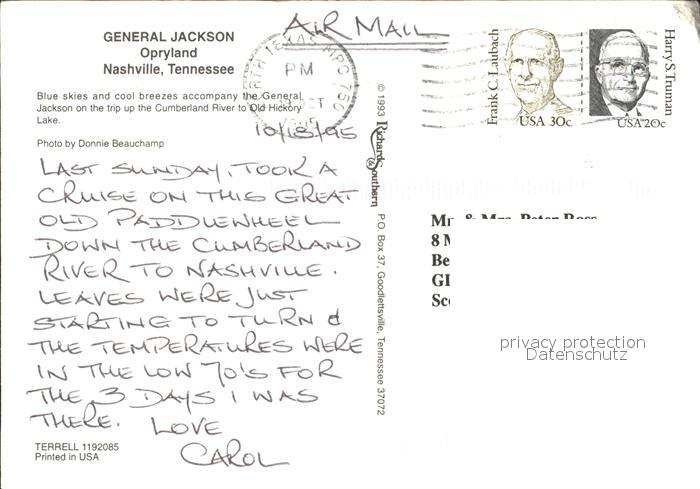 AIR MAIL
GENERAL JACKSON
Opryland
Nashville, Tennessee
Blue skies and cool breezes accompany the General
Jackson on the trip up the Cumberland River to Old Hickory
Lake.
Photo by Donnie Beauchamp
NORTH TEXAS MPC 750
PM
OCT
1995
10/18/95
LAST SUNDAY, TOOK A
CRUISE ON THIS GREAT
OLD PADDLEWHEEL
DOWN THE CUMBERLAND
RIVER TO NASHVILLE.
LEAVES WERE JUST
STARTING TO TURN &
THE TEMPERATURES WERE
IN THE LOW 70'S FOR
THE 3 DAYS I WAS
THERE. LOVE
CAROL
TERRELL 1192085
Printed in USA
© 1993 Richards & Southern P.O. Box 37, Goodlettsville, Tennessee 37072
Frank C. Laubach
USA 30c
Harry S. Truman
USA 20c
& Mrs. Peter Ross
8
Be
privacy protection
Datenschutz